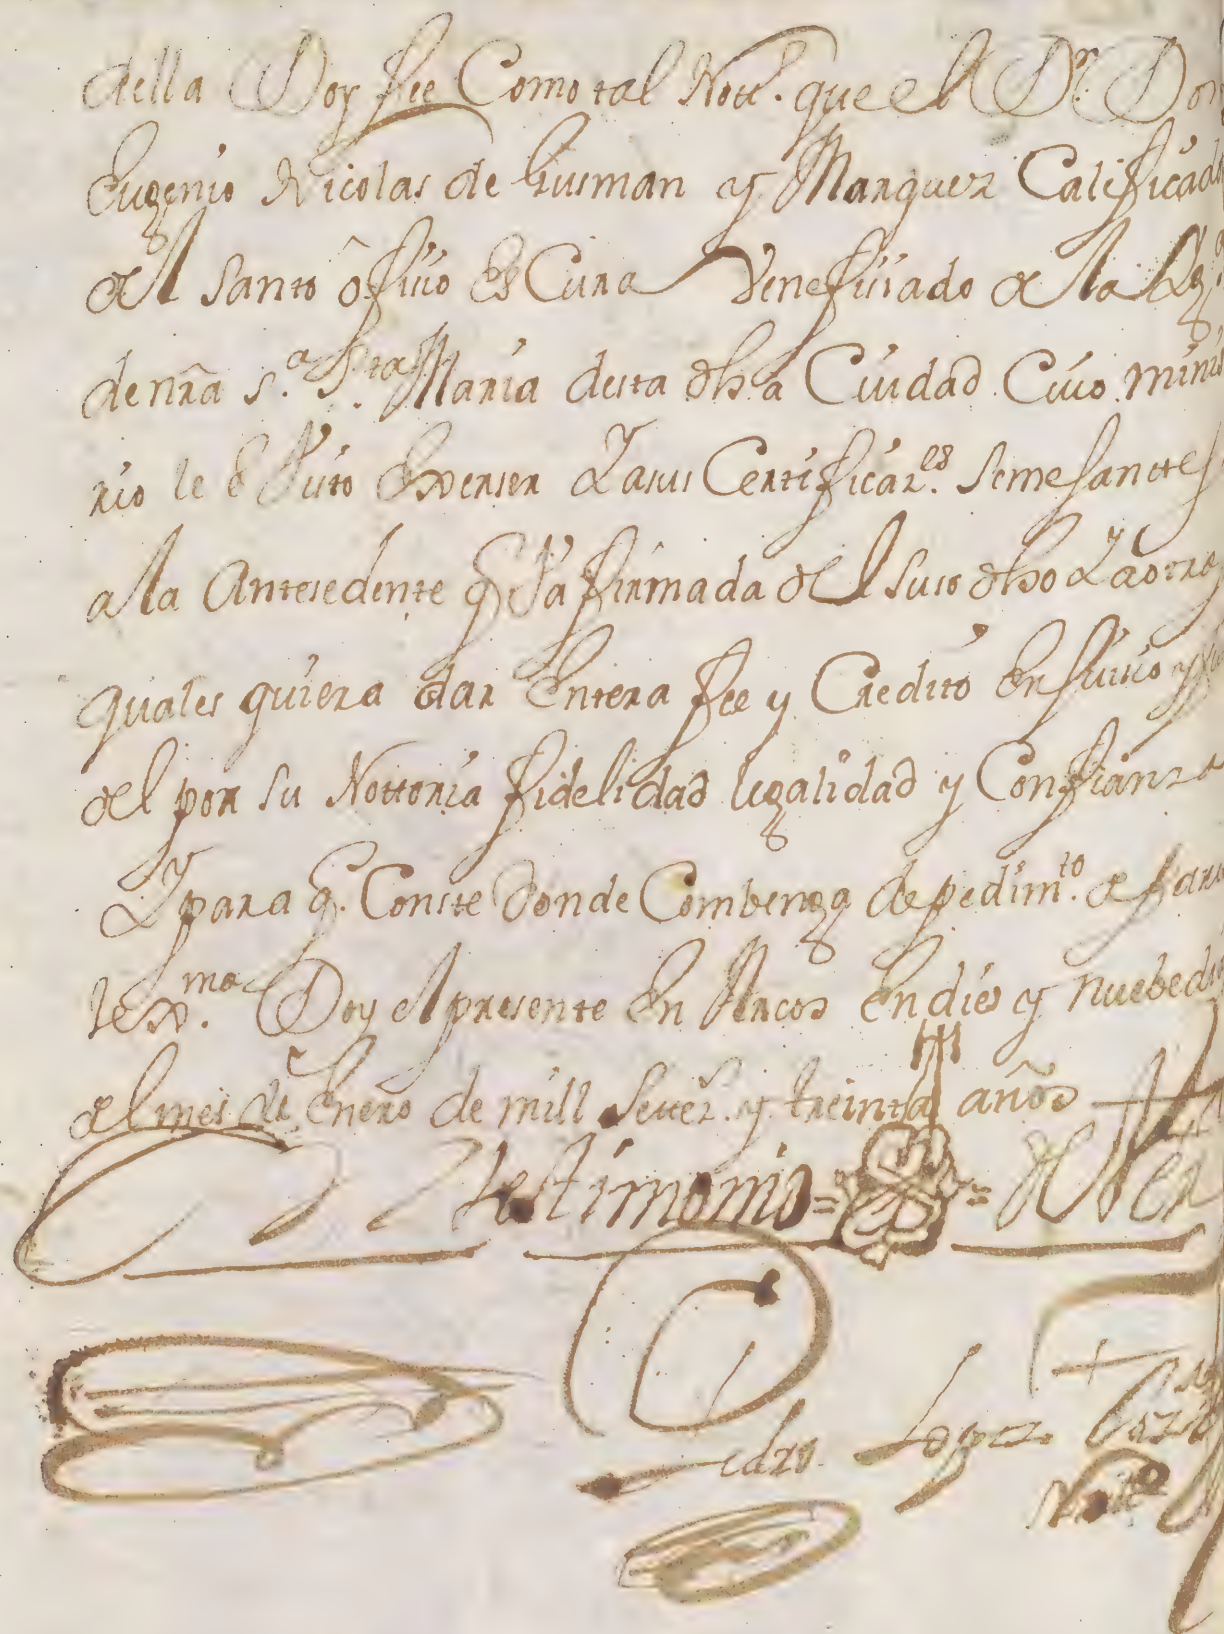 della Doy fee Como tal Nott.º que el D.r Don
Eugenio Nicolas de Gusman y Marquez Calificad
del Santo ofiçio Es Cura Venefiçiado de la Ygª
de nrã s.ª S.ta Maria desta dhã Ciudad Cuio minis
rio le E Visto Exerser Y a sus Certificaz.es Semejantes
a la Antesedente q Va firmada del Suso dho Y a otras
quales quiera dar Entera fee y Credito En Juiçio y
del por su Nottoria fidelidad legalidad y Confianza
Y para q. Conste donde Combenga de pedim.to de parte
lex.ma Doy el presente En Arcos En dies y nuebe di
del mes de Enero de mill Settez.s y treinta años
testimonio = = de Ver
Pedro Lopez
Nott.º